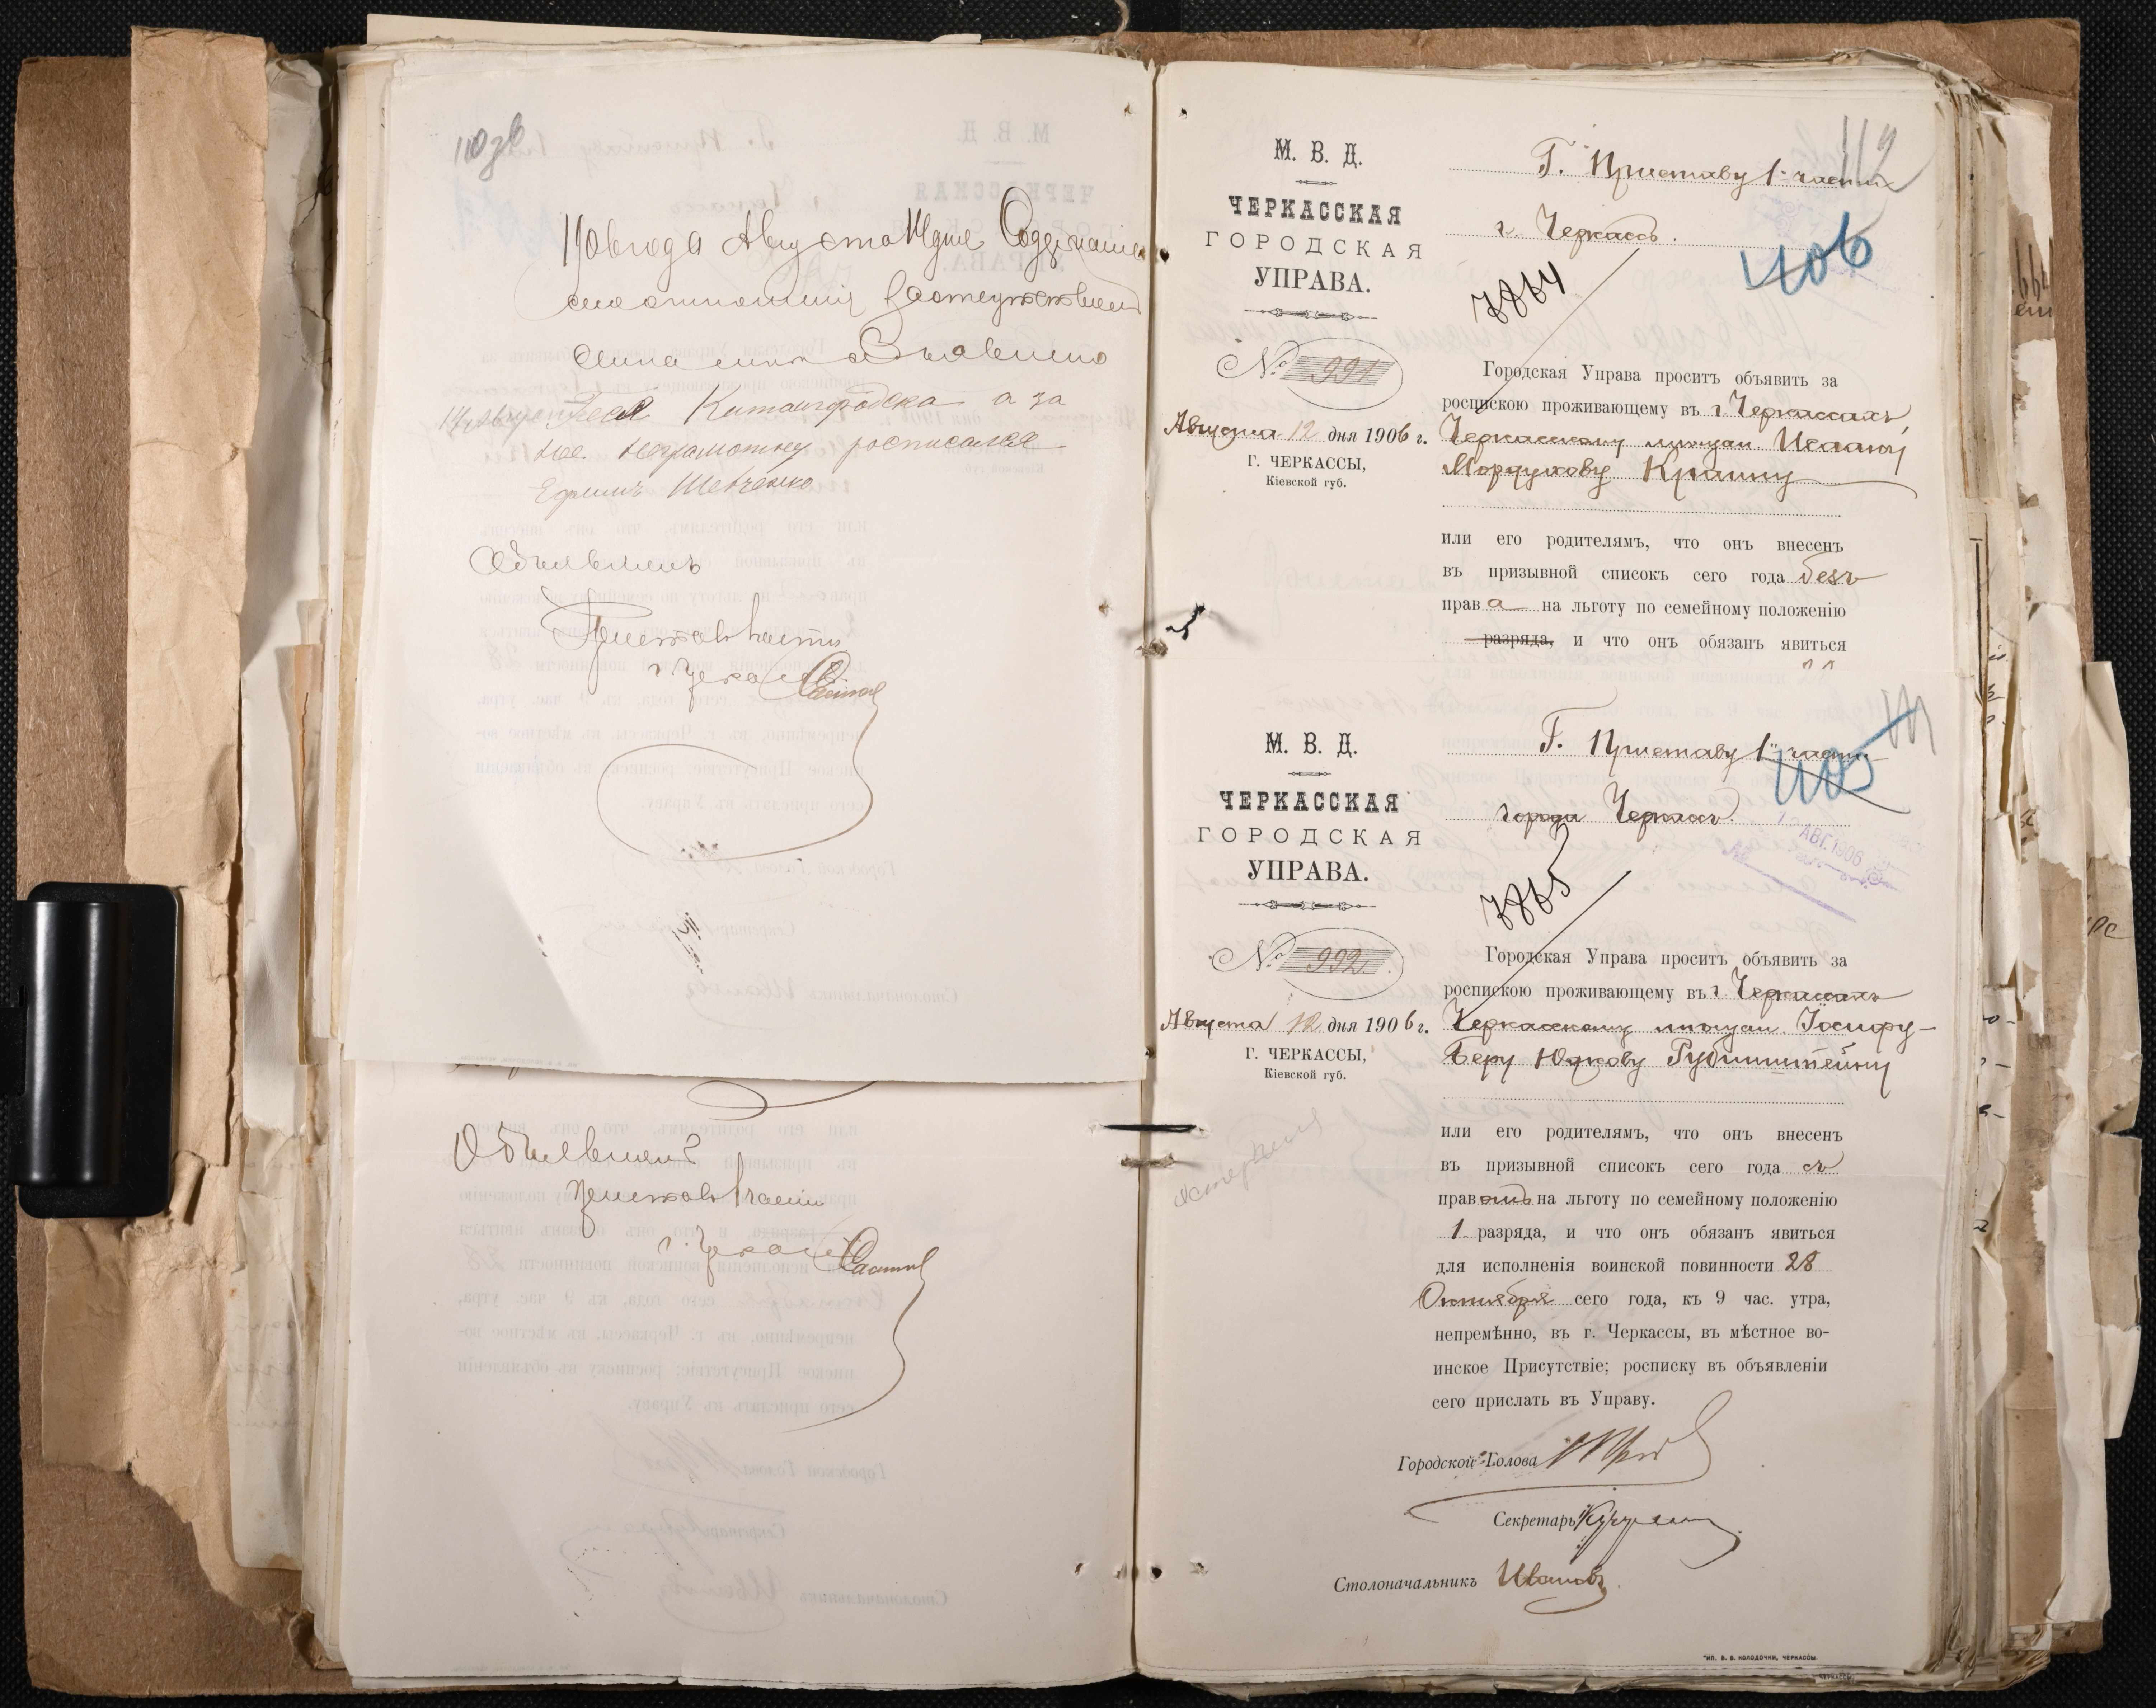 110 зв
1906 года Августа 14 дня Содержание
сего отношения
мне Объявлено
14 августа Лея Китайгородска а за
нее неграмотну росписался
Ефимъ Шевченко
Объявленъ
Приставъ 1 части
г. Черкассъ
Объявленъ
Приставъ 1 части
г. Черкассъ
112
М. В. Д.
ЧЕРКАССКАЯ
ГОРОДСКАЯ
УПРАВА.
Г. Приставу 1й части
г. Черкассъ.
1106
7864
№ 991
Августа 12 дня 1906 г.
Г. ЧЕРКАССЫ,
Кіевской губ.
Городская Управа проситъ объявить за
роспискою проживающему въ г Черкассахъ,
Черкасскому мѣщан.
Мордухову
или его родителямъ, что онъ внесенъ
въ призывной списокъ сего года безъ
права на льготу по семейному положенію
разряда, и что онъ обязанъ явиться
111
М. В. Д.
ЧЕРКАССКАЯ
ГОРОДСКАЯ
УПРАВА.
Г. Приставу 1й части
города Черкассъ.
1105
12 АВГ. 1906
7865
№ 992
Августа 12 дня 1906 г.
Г. ЧЕРКАССЫ,
Кіевской губ.
Городская Управа проситъ объявить за
роспискою проживающему въ г Черкассахъ
Черкасскому мѣщан Іосифу-
Беру Юдкову Рубинштейну
или его родителямъ, что онъ внесенъ
въ призывной списокъ сего года съ
правомъ на льготу по семейному положенію
1 разряда, и что онъ обязанъ явиться
для исполненія воинской повинности 28
Октября сего года, къ 9 час. утра,
непремѣнно, въ г. Черкассы, въ мѣстное во-
инское Присутствіе; росписку въ объявленіи
сего прислать въ Управу.
Городской Голова
Секретарь
Столоначальникъ Ивановъ
ТИП. В. В. КОЛОДОЧКИ, ЧЕРКАССЫ.
ЧЕРКАССЫ.